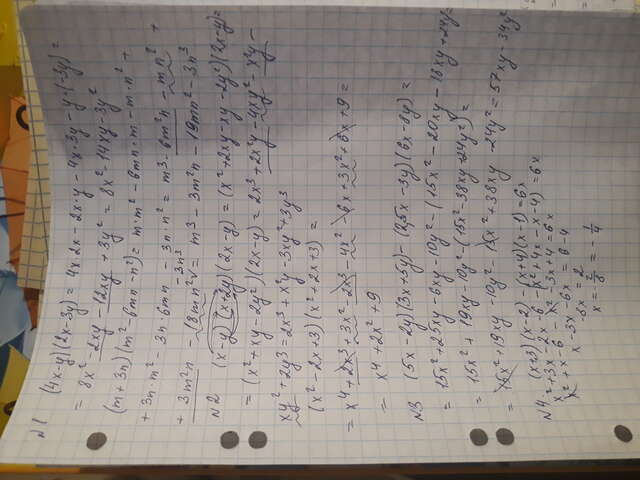 №1 (4x-y)(2x-3y) = 4x·2x - 2x·y - 4x·3y - y·(-3y) =
= 8x² - 2xy - 12xy + 3y² = 8x² - 14xy - 3y²
(m+3n)(m² - 6mn - n²) = m·m² - 6mn·m - m·n² +
+ 3n·m² - 3n·6mn - 3n·n² = m³ - 6m²n - mn² +
+ 3m²n - 18mn² - 3n³ = m³ - 3m²n - 19mn² - 3n³
№2 (x-y)(x+2y)(2x-y) = (x² + 2xy - xy - 2y²)(2x-y) =
= (x² + xy - 2y²)(2x-y) = 2x³ + 2x²y - 4xy² - x²y -
xy² + 2y³ = 2x³ + x²y - 3xy² + 3y³
(x² - 2x + 3)(x² + 2x + 3) =
= x⁴ + 2x³ + 3x² - 2x³ - 4x² - 6x + 3x² + 6x + 9 =
= x⁴ + 2x² + 9
№3 (5x-2y)(3x+5y) - (2,5x-3y)(6x-8y) =
= 15x² + 25xy - 6xy - 10y² - (15x² - 20xy - 18xy + 24y²) =
= 15x² + 19xy - 10y² - (15x² - 38xy + 24y²) =
= 15x² + 19xy - 10y² - 15x² + 38xy - 24y² = 57xy - 34y²
№4 (x+3)(x-2) - (x+4)(x-1) = 6x
x² + 3x - 2x - 6 - (x² + 4x - x - 4) = 6x
x² + x - 6 - x² - 3x + 4 = 6x
x - 3x - 6x = 6 - 4